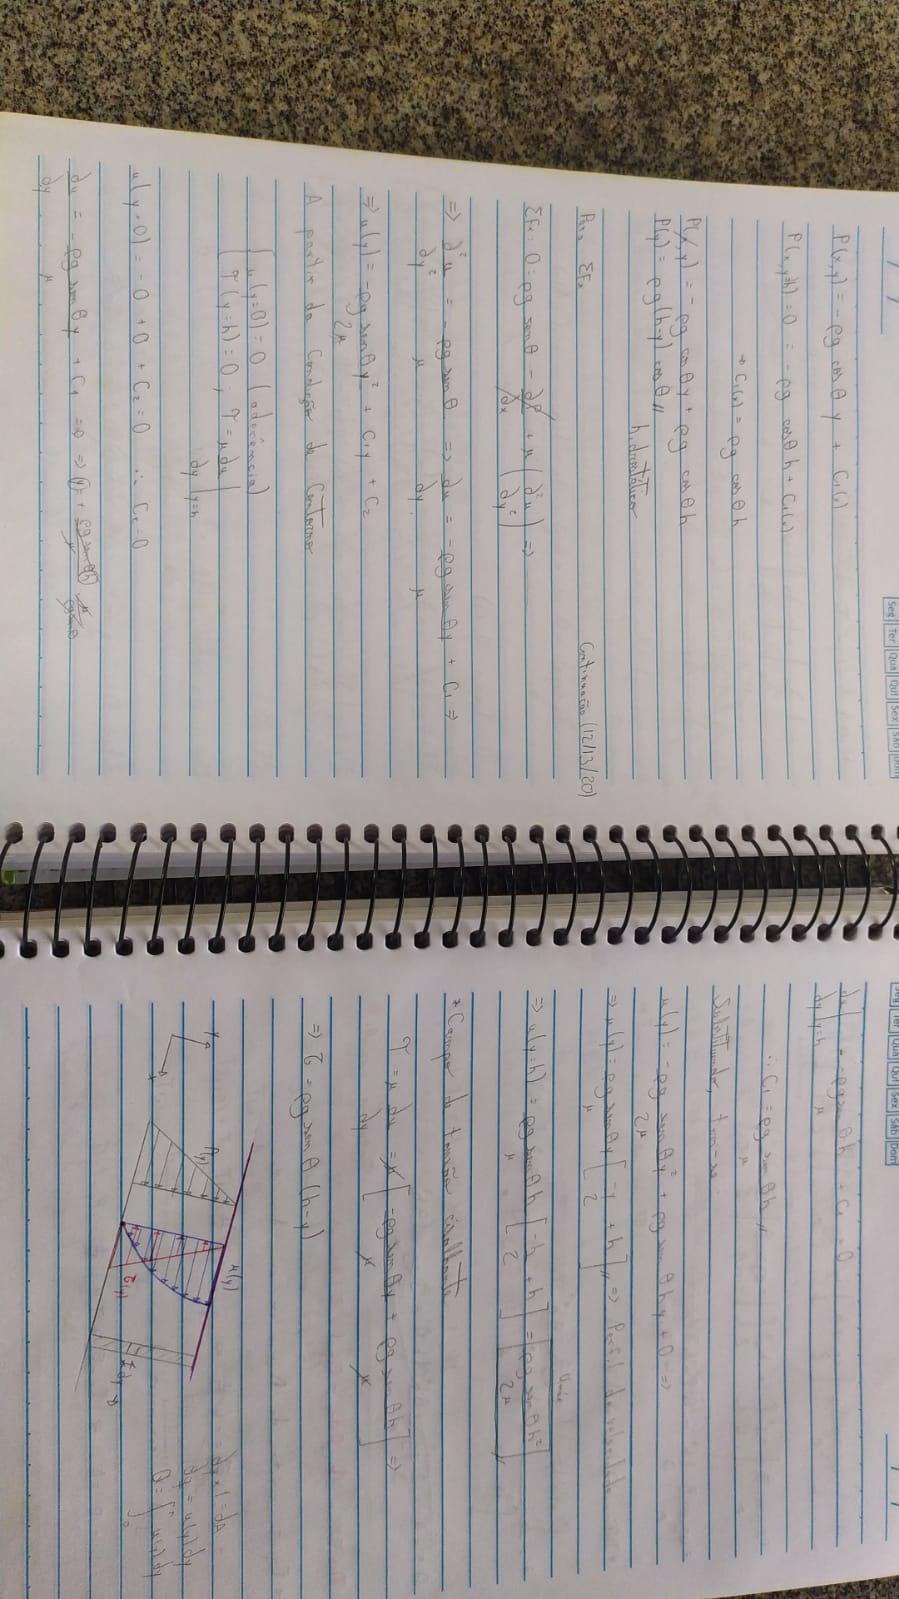 Seg Ter Qua Qui Sex Sáb Dom
P(x,y) = -ρg cosθ y + C₁(x)
P(x,y=h) = 0 = -ρg cosθ h + C₁(x)
→ C₁(x) = ρg cosθ h
P(x,y) = -ρg cosθ y + ρg cosθ h
P(y) = ρg(h-y) cosθ // hidrostático
Continuação (12/13/20)
Para ΣFx
ΣFx: 0 = ρg senθ - ∂P/∂x + μ(∂²u/∂y²) ⇒
⇒ ∂²u/∂y² = -ρg senθ/μ ⇒ ∂u/∂y = -ρg senθ y/μ + C₁ ⇒
⇒ u(y) = -ρg senθ y²/2μ + C₁y + C₂
A partir da Condição de Contorno
{ u(y=0) = 0 (aderência)
τ(y=h) = 0 ; τ = μ ∂u/∂y |y=h
u(y=0) = -0 + 0 + C₂ = 0 ∴ C₂ = 0
∂u/∂y = -ρg senθ y/μ + C₁ = 0 ⇒
Seg Ter Qua Qui Sex Sáb Dom
∂u/∂y |y=h = -ρg senθ h/μ + C₁ = 0
∴ C₁ = ρg senθ h/μ //
Substituindo, tem-se
u(y) = -ρg senθ y²/2μ + ρg senθ h y/μ + 0 ⇒
⇒ u(y) = ρg senθ y/μ [-y/2 + h] // ⇒ Perfil de velocidade
⇒ u(y=h) = ρg senθ h/μ [-h/2 + h] = ρg senθ h²/2μ //
* Campo de tensão cisalhante
τ = μ ∂u/∂y = μ [-ρg senθ y/μ + ρg senθ h/μ] ⇒
⇒ τ = ρg senθ (h-y)
y
x
P(y)
u(y)
τ(y)
dy × 1 = dA
dq = u(y) dy
Q = ∫₀ʰ u(y) dy